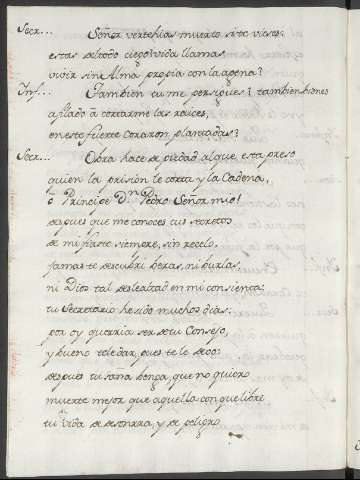 Secr... Señor verte hias muerto si te vieses:
estas al todo ciego? vida llamas
vivir sin Alma propia con la agena?
Inf... Tambien tu me persigues? tambien bienes
afilado a cortarme las raices,
en este fuerte Corazon plantadas?
Secr... Obra hace de piedad al que esta preso
quien la prision le corta y la Cadena,
ò Principe Dn Pedro Señor mio!
despues que me conoces tus secretos
de mi fiaste siempre, sin recelo,
jamas te descubri beras, ni burlas,
ni Dios tal deslealtad en mi consienta:
tu Secretario he sido muchos dias:
poi oy querria ser de tu Consejo,
y bueno teledar, pues te le devo:
despues tu saña benga, que no quiero
muerte mejor que aquella con que libre
tu vida de desonrra, y de peligro